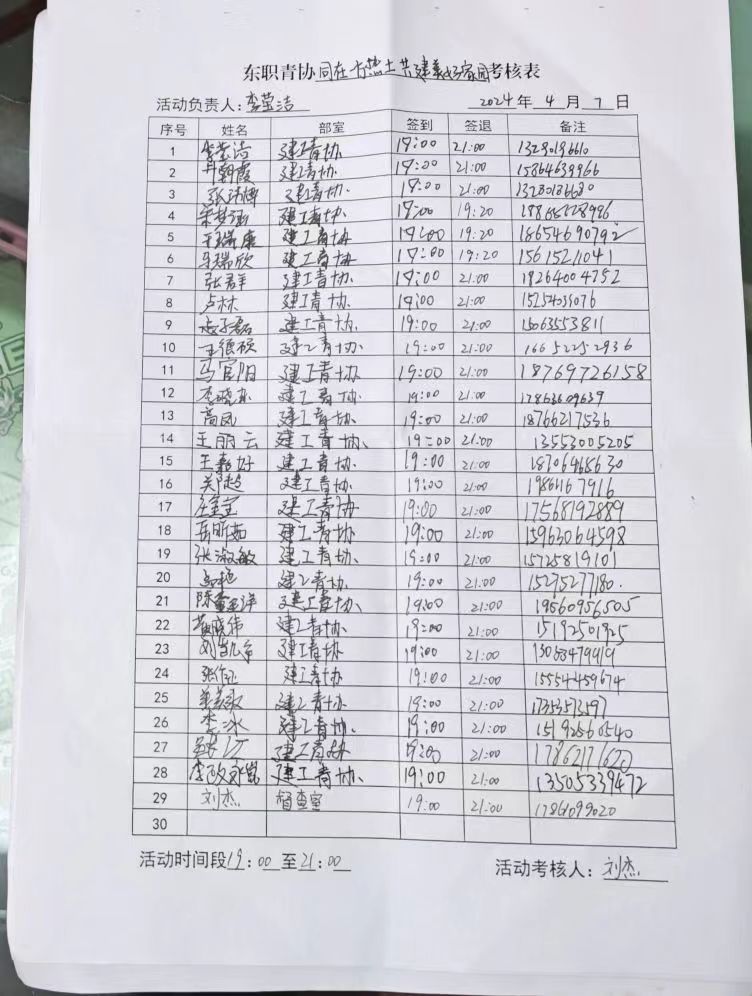 东职青协同在一方热土共建美好家园考核表
活动负责人：李莹洁 2024年4月7日
序号 姓名 部室 签到 签退 备注
1 李莹洁 建工青协 19:00 21:00
2 建工青协 19:00 21:00 15864639966
3 建工青协 19:00 21:00
4 建工青协 19:00 19:20
5 王瑞康 建工青协 19:00 19:20 18654690792
6 马瑞欣 建工青协 19:00 19:20 15615221041
7 张君群 建工青协 19:00 21:00 18264004752
8 卢林 建工青协 19:00 21:00
9 建工青协 19:00 21:00 15063553811
10 建工青协 19:00 21:00 16652252936
11 马官阳 建工青协 19:00 21:00 18769726158
12 建工青协 19:00 21:00
13 高凤 建工青协 19:00 21:00 18766217536
14 王丽云 建工青协 19:00 21:00 13553005205
15 王嘉好 建工青协 19:00 21:00
16 郑超 建工青协 19:00 21:00
17 建工青协 19:00 21:00 17568192889
18 建工青协 19:00 21:00 15963064598
19 张淑敏 建工青协 19:00 21:00 15725819101
20 建工青协 19:00 21:00 15275277180
21 建工青协 19:00 21:00 19560956505
22 黄晓伟 建工青协 19:00 21:00 15192501925
23 建工青协 19:00 21:00
24 建工青协 19:00 21:00 15554459674
25 建工青协 19:00 21:00
26 李冰 建工青协 19:00 21:00 15192560540
27 建工青协 19:00 21:00 17862171620
28 建工青协 19:00 21:00 13505339472
29 刘杰 督查室 19:00 21:00
30
活动时间段19:00至21:00 活动考核人：刘杰